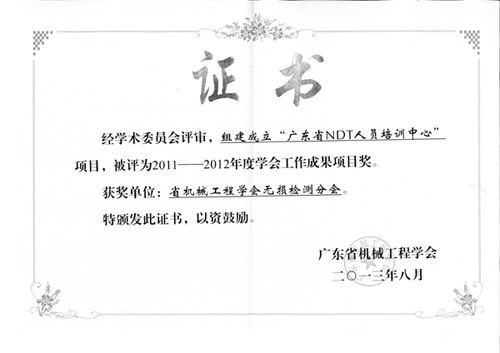 证书
经学术委员会评审，组建成立“广东省NDT人员培训中心”
项目，被评为2011——2012年度学会工作成果项目奖。
获奖单位：省机械工程学会无损检测分会。
特颁发此证书，以资鼓励。
广东省机械工程学会
二〇一三年八月